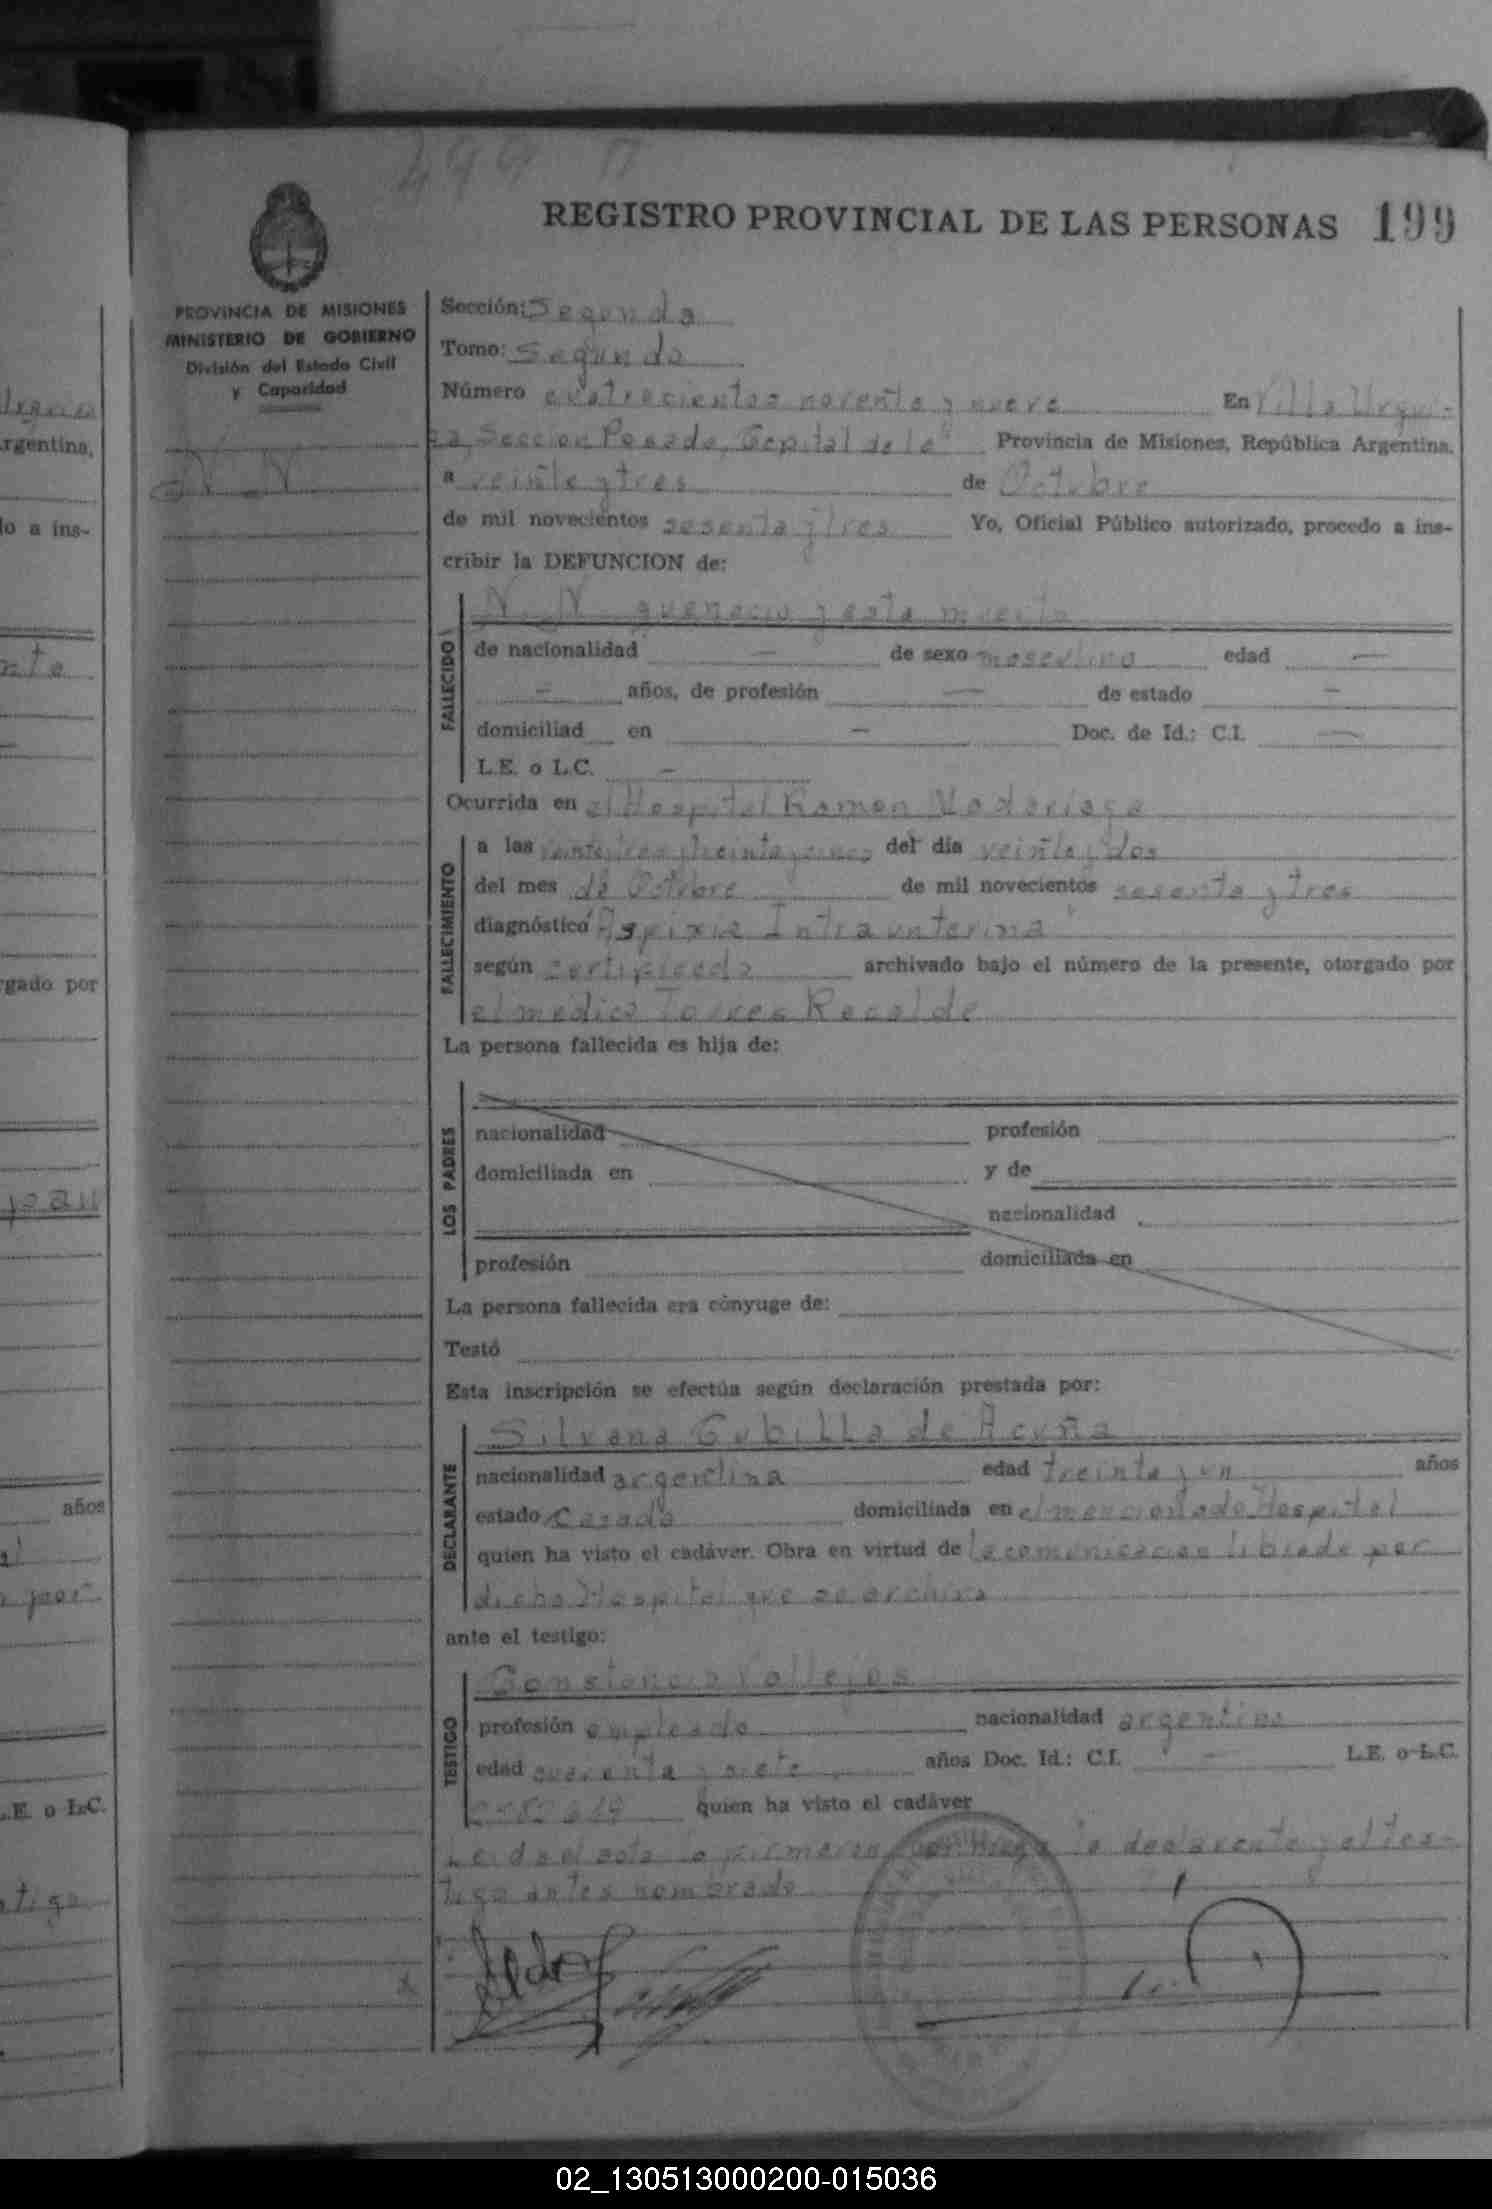 499
REGISTRO PROVINCIAL DE LAS PERSONAS 199
PROVINCIA DE MISIONES
MINISTERIO DE GOBIERNO
División del Estado Civil
y Capacidad
N N
Sección: Segunda
Tomo: Segundo
Número cuatrocientos noventa y nueve En Villa Urqui-
za, Seccion Posadas, Capital de la Provincia de Misiones, República Argentina,
a veinte y tres de Octubre
de mil novecientos sesenta y tres Yo, Oficial Público autorizado, procedo a ins-
cribir la DEFUNCION de:
N. N. que nacio y esta muerto
FALLECIDO
de nacionalidad — de sexo masculino edad —
— años, de profesión — de estado —
domiciliad en — Doc. de Id.: C.I. —
L.E. o L.C. —
Ocurrida en el Hospital Ramon Madariaga
FALLECIMIENTO
a las veinte y tres y treinta y cinco del día veinte y dos
del mes de Octubre de mil novecientos sesenta y tres
diagnóstico "Aspixia Intraunterina"
según certificado archivado bajo el número de la presente, otorgado por
el medico Torres Recalde
La persona fallecida es hija de:
LOS PADRES
nacionalidad profesión
domiciliada en y de
nacionalidad
profesión domiciliada en
La persona fallecida era cónyuge de:
Testó
Esta inscripción se efectúa según declaración prestada por:
DECLARANTE
Silvana Cubilla de Acuña
nacionalidad argentina edad treinta y un años
estado Casada domiciliada en el mencionado Hospital
quien ha visto el cadáver. Obra en virtud de la comunicacion librada por
dicho Hospital que se archiva
ante el testigo:
TESTIGO
Constancio Vallejos
profesión empleado nacionalidad argentino
edad cuarenta y siete años Doc. Id.: C.I. — L.E. o L.C.
quien ha visto el cadáver
Leida el acta la firmaron la declarante y el tes-
tigo antes nombrado
rgentina,
lo a ins-
rgado por
años
L.E. o L.C.
02_130513000200-015036